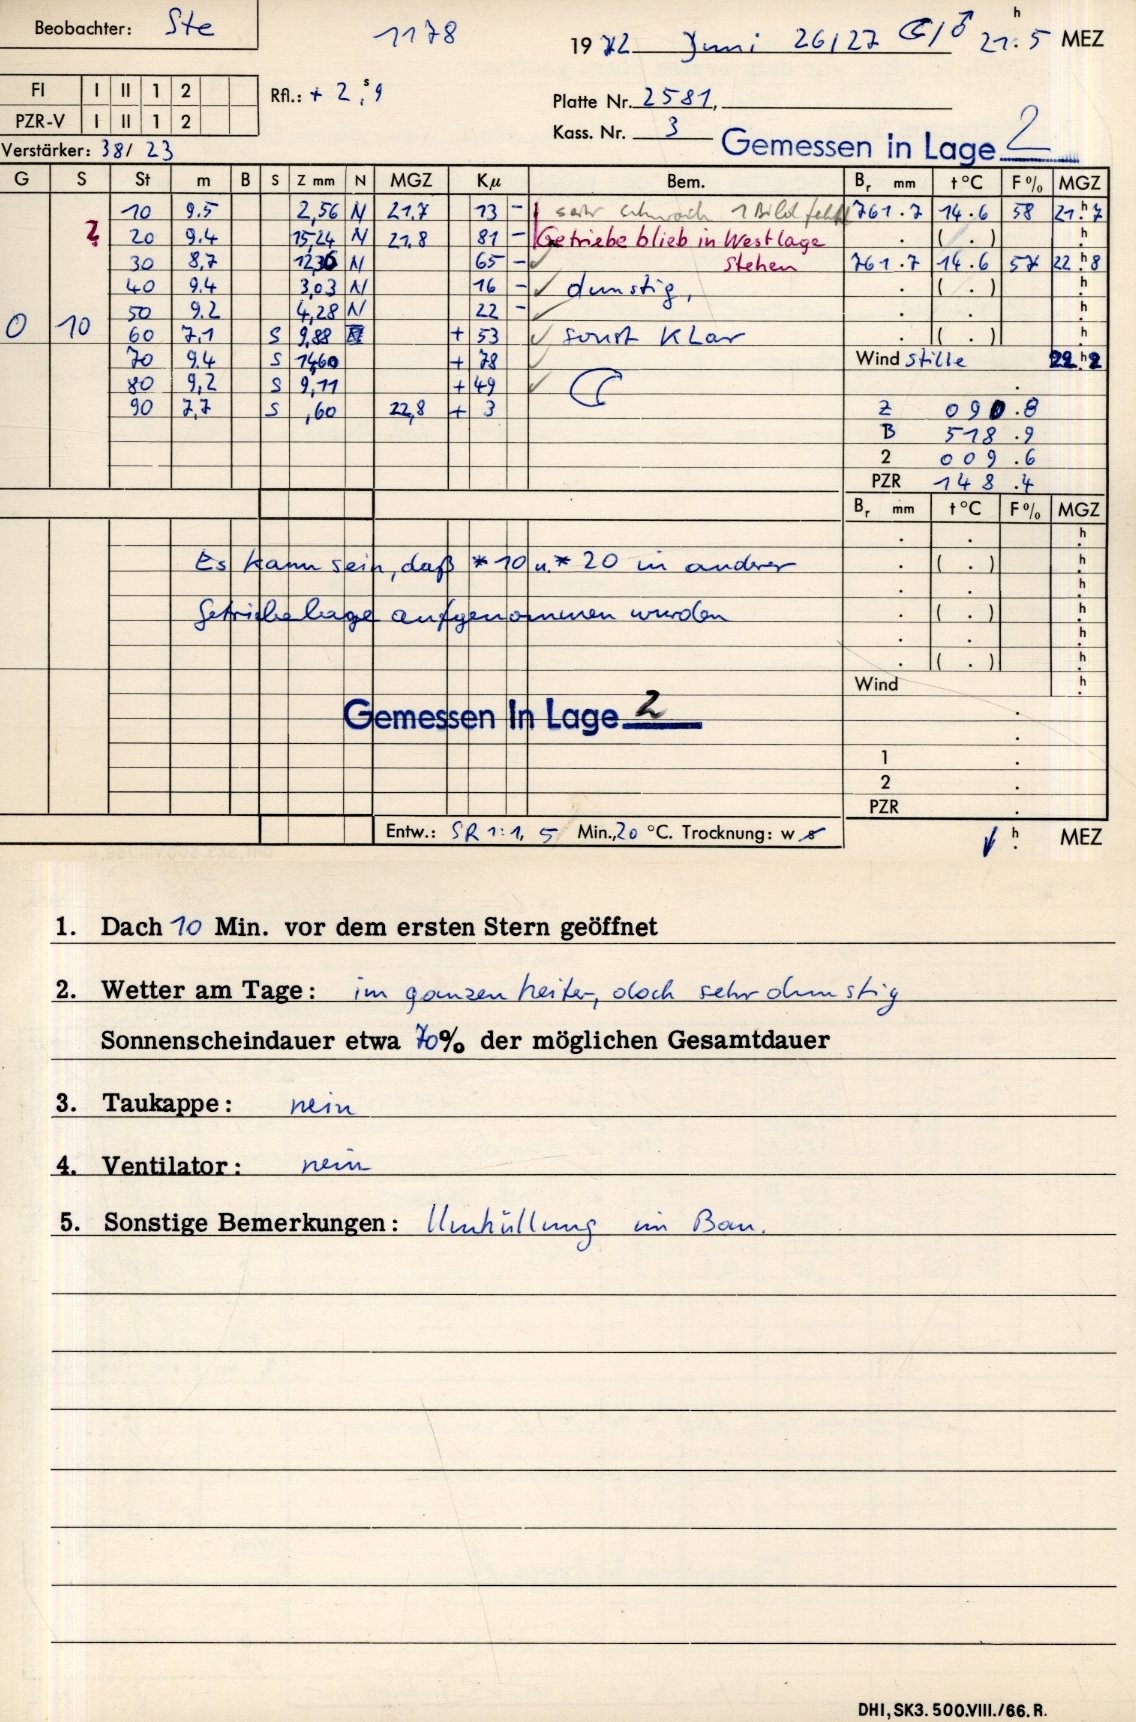 Beobachter: Ste
1178
19 72 Juni 26/27 ☾/♂ 21h.5 MEZ
FI I II 1 2
PZR-V I II 1 2
Rfl.: + 2s.9
Platte Nr. 2581,
Kass. Nr. 3
Gemessen in Lage 2
Verstärker: 38/ 23
G S St m B S Z mm N MGZ Kμ Bem. Br mm t °C F % MGZ
10 9.5 2,56 N 21.7 13 - sehr schwach 1 Bild fehlt 761.7 14.6 58 21h.7
? 20 9.4 15,24 N 21.8 81 - Getriebe blieb in Westlage . ( . ) h.
30 8,7 12,36 N 65 - stehen 761.7 14.6 57 22h.8
40 9.4 3,03 N 16 - dunstig, . ( . ) h.
50 9.2 4,28 N 22 - . . h.
0 10 60 7,1 S 9,88 + 53 sonst Klar . ( . ) h.
70 9.4 S 14,60 + 78 Wind stille 22h.2
80 9,2 S 9,11 + 49 ☾ .
90 7,7 S ,60 22,8 + 3 Z 090.8
B 518.9
2 009.6
PZR 148.4
Br mm t °C F % MGZ
. . h.
Es kann sein, daß *10 u. *20 in anderer . ( . ) h.
. . h.
Getriebelage aufgenommen wurden . ( . ) h.
. . h.
. ( . ) h.
Wind h.
Gemessen in Lage 2 .
.
1 .
2 .
PZR .
Entw.: SR 1:1, 5 Min., 20 °C. Trocknung: w s
h. MEZ
1. Dach 10 Min. vor dem ersten Stern geöffnet
2. Wetter am Tage: im ganzen heiter, doch sehr dunstig
Sonnenscheindauer etwa 70% der möglichen Gesamtdauer
3. Taukappe: nein
4. Ventilator: nein
5. Sonstige Bemerkungen: Umhüllung im Bau.
DHI, SK3. 500.VIII./66. R.